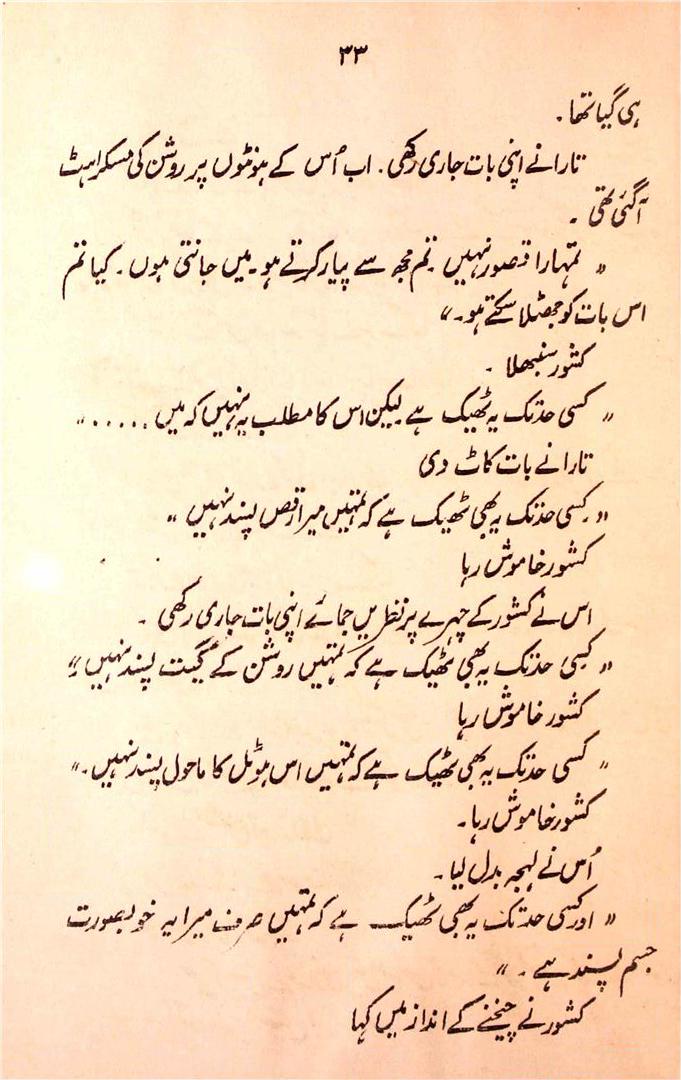 ۳۳
ہی گیا تھا۔
تارا نے اپنی بات جاری رکھی۔ اب اُس کے ہونٹوں پر روشن کی مسکراہٹ
آ گئی تھی۔
" تمہارا قصور نہیں۔ تم مجھ سے پیار کرتے ہو۔ میں جانتی ہوں۔ کیا تم
اس بات کو جھٹلا سکتے ہو۔"
کشور سنبھلا۔
" کسی حد تک یہ ٹھیک ہے لیکن اس کا مطلب یہ نہیں کہ میں ....."
تارا نے بات کاٹ دی
" کسی حد تک یہ بھی ٹھیک ہے کہ تمہیں میرا رقص پسند نہیں "
کشور خاموش رہا
اس نے کشور کے چہرے پر نظریں جمائے اپنی بات جاری رکھی۔
" کسی حد تک یہ بھی ٹھیک ہے کہ تمہیں روشن کے گیت پسند نہیں "
کشور خاموش رہا
" کسی حد تک یہ بھی ٹھیک ہے کہ تمہیں اس ہوٹل کا ماحول پسند نہیں۔"
کشور خاموش رہا۔
اُس نے لہجہ بدل لیا۔
" اور کسی حد تک یہ بھی ٹھیک ہے کہ تمہیں صرف میرا یہ خوبصورت
جسم پسند ہے۔ "
کشور نے چیخنے کے انداز میں کہا